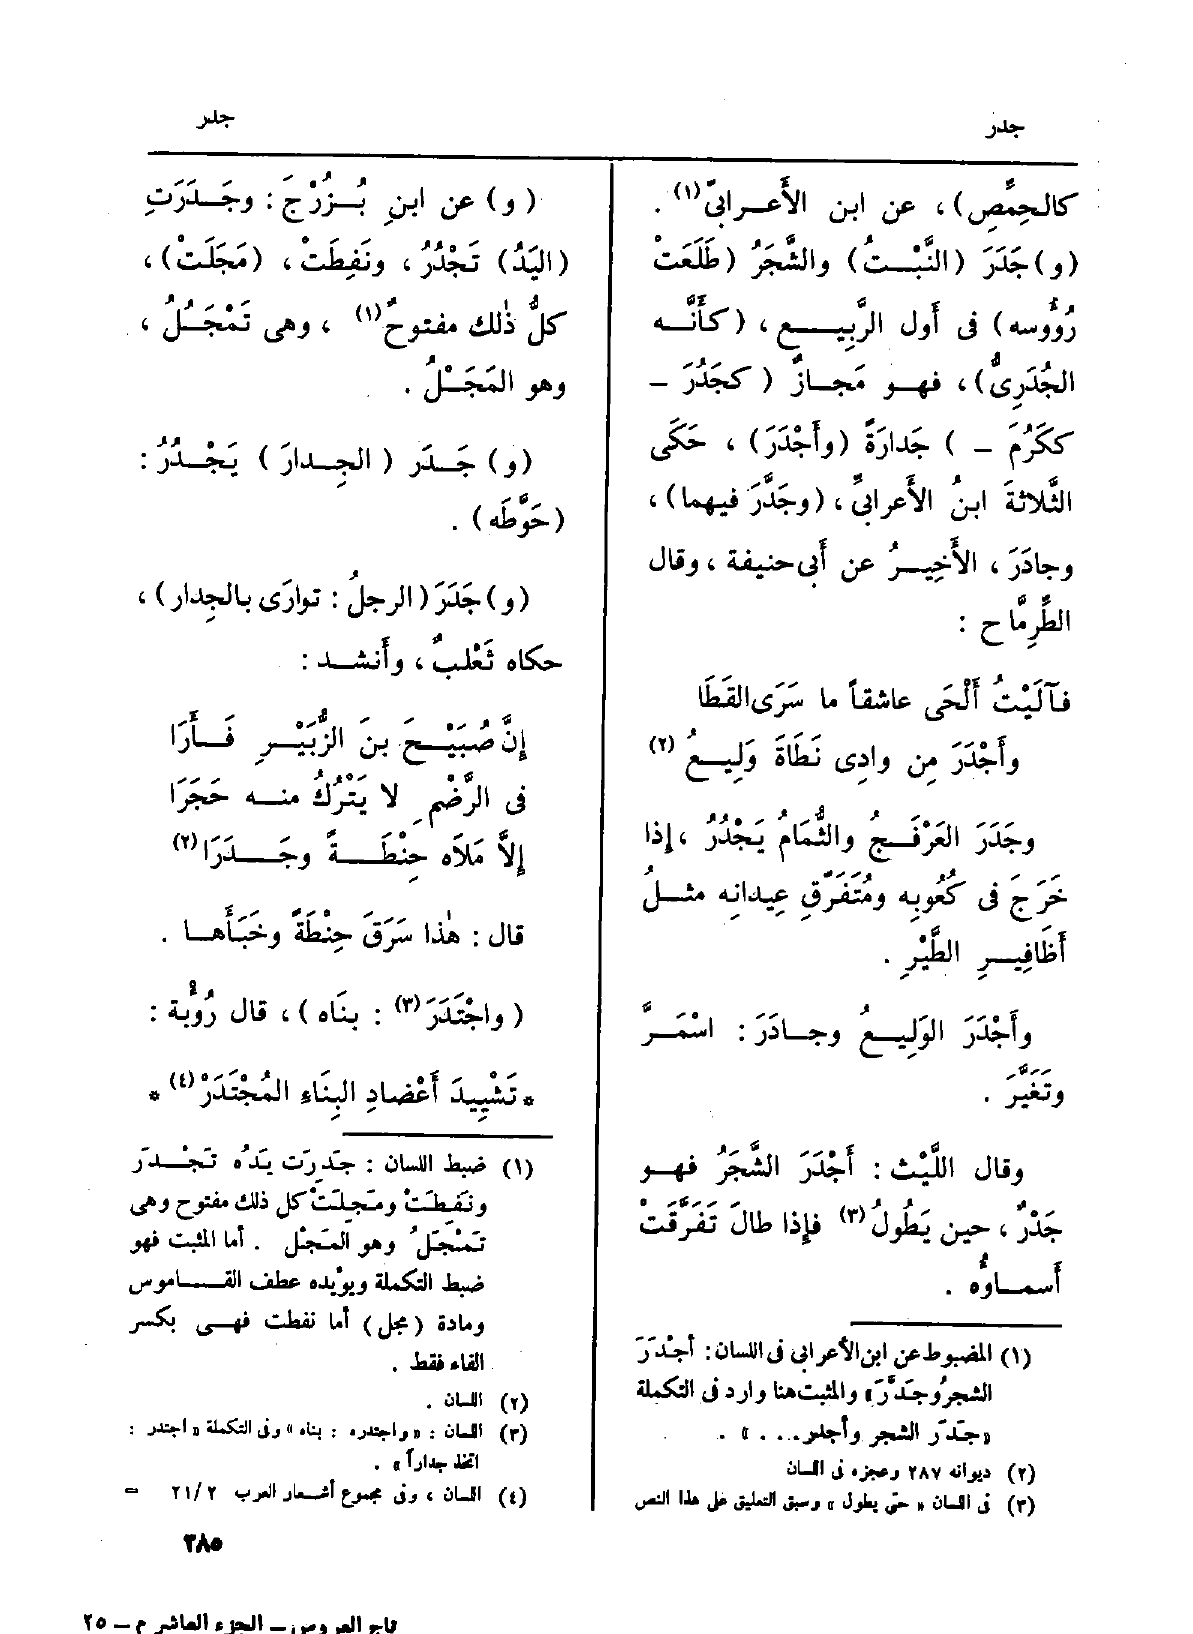 جدر
جدر
كالحِمَّصِ)، عن ابن الأَعـرابىِّ(١) .
(و) جَدَرَ (النَّبْـتُ) والشَّجَرُ (طَلَعَتْ
رُؤُوسه) فى أَول الرَّبِيــع ، (كأَنَّـه
الجُدَرِىُّ)، فهـو مَجـازٌ (كجَدُرَ -
ككَرُمَ - ) جَدارَةً (وأَجْدَرَ) ، حَكَى
الثَّلاثةَ ابنُ الأَعرابىِّ ، (وجَدَّرَ فيهما)،
وجادَرَ ، الأَخِيـرُ عن أَبى حنيفة ، وقال
الطِّرِمَّاح :
فآلَيْتُ أَلْحَى عاشقاً ما سَرَى القَطَا
وأَجْدَرَ مِن وادِى نَطَاةَ وَلِيـعُ (٢)
وجَدَرَ العَرْفَـجُ والثُّمَامُ يَجْدُرُ ، إِذا
خَرَجَ فى كُعُوبِه ومُتَفَرَّقِ عِيدانِه مثـلُ
أَظَافِيـرِ الطَّيْرِ .
وأَجْدَرَ الوَلِيـعُ وجـادَرَ : اسْمَـرَّ
وتَغَيَّرَ .
وقال اللَّيْث : أَجْدَرَ الشَّجَرُ فهـو
جَدْرٌ ، حين يَطُولُ(٣) فإِذا طالَ تَفَرَّقَتْ
أَسمـاؤُه .
(١) المضبوط عن ابن الأعرابى فى اللسان: أجْدَرَ
الشجرُ وجَدَّرَ» والمثبت هنا وارد فى التكملة
«جَدَرَ الشجر وأجدر....» .
(٢) ديوانه ٢٨٧ وعجزه فى اللسان
(٣) فى اللسان «حتى يطول» وسبق التعليق على هذا النص
(و) عن ابنِ بُـزُرْجَ : وجَـدَرَتِ
(اليَدُ) تَجْدُرُ ، ونَفِطَتْ ، (مَجَلَتْ)،
كلُّ ذٰلك مفتوحٌ(١) ، وهى تَمْجُـلُ ،
وهو المَجَـلُ .
(و) جَـدَر (الجِـدارَ) يَجْـدُرُ :
(حَوَّطَه) .
(و) جَدَرَ (الرجلُ : توارَى بالجِدار) ،
حكاه ثَعْلبٌ ، وأَنشـد :
إِنَّ صُبَيْـحَ بنَ الزُّبَيْـرِ فَـأَرَا
فى الرَّضْمِ لا يَتْرُكُ منـه حَجَرَا
إِلَّا مَلَاه حِنْطَـةً وجَـدَرَا(٢)
قال : هٰذا سَرَقَ حِنْطَةً وخَبَأَهـا .
(واجْتَدَرَ(٣) : بناه)، قال رُؤْبَة :
* تَشْيِيدَ أَعْضادِ البِنَاءِ المُجْتَدَرْ(٤) *
(١) ضبط اللسان : جَدِرَت يَدُه تَجْـدَر
ونَفِطَتْ ومَجِلَتْ كل ذلك مفتوح وهى
تَمْجَلُ وهو المَجْل . أما المثبت فهو
ضبط التكملة ويؤيده عطف القـاموس
ومادة (مجل) أما نفطت فهـى بكسر
الفاء فقط .
(٢) اللسان .
(٣) اللسان : «واجتدره : بناه» وفى التكملة «اجتدر :
اتخذ جداراً» .
(٤) اللسان ، وفى مجموع أشعار العرب ٢١/٢ =
٣٨٥
تاج العروس – الجزء العاشر م – ٢٥